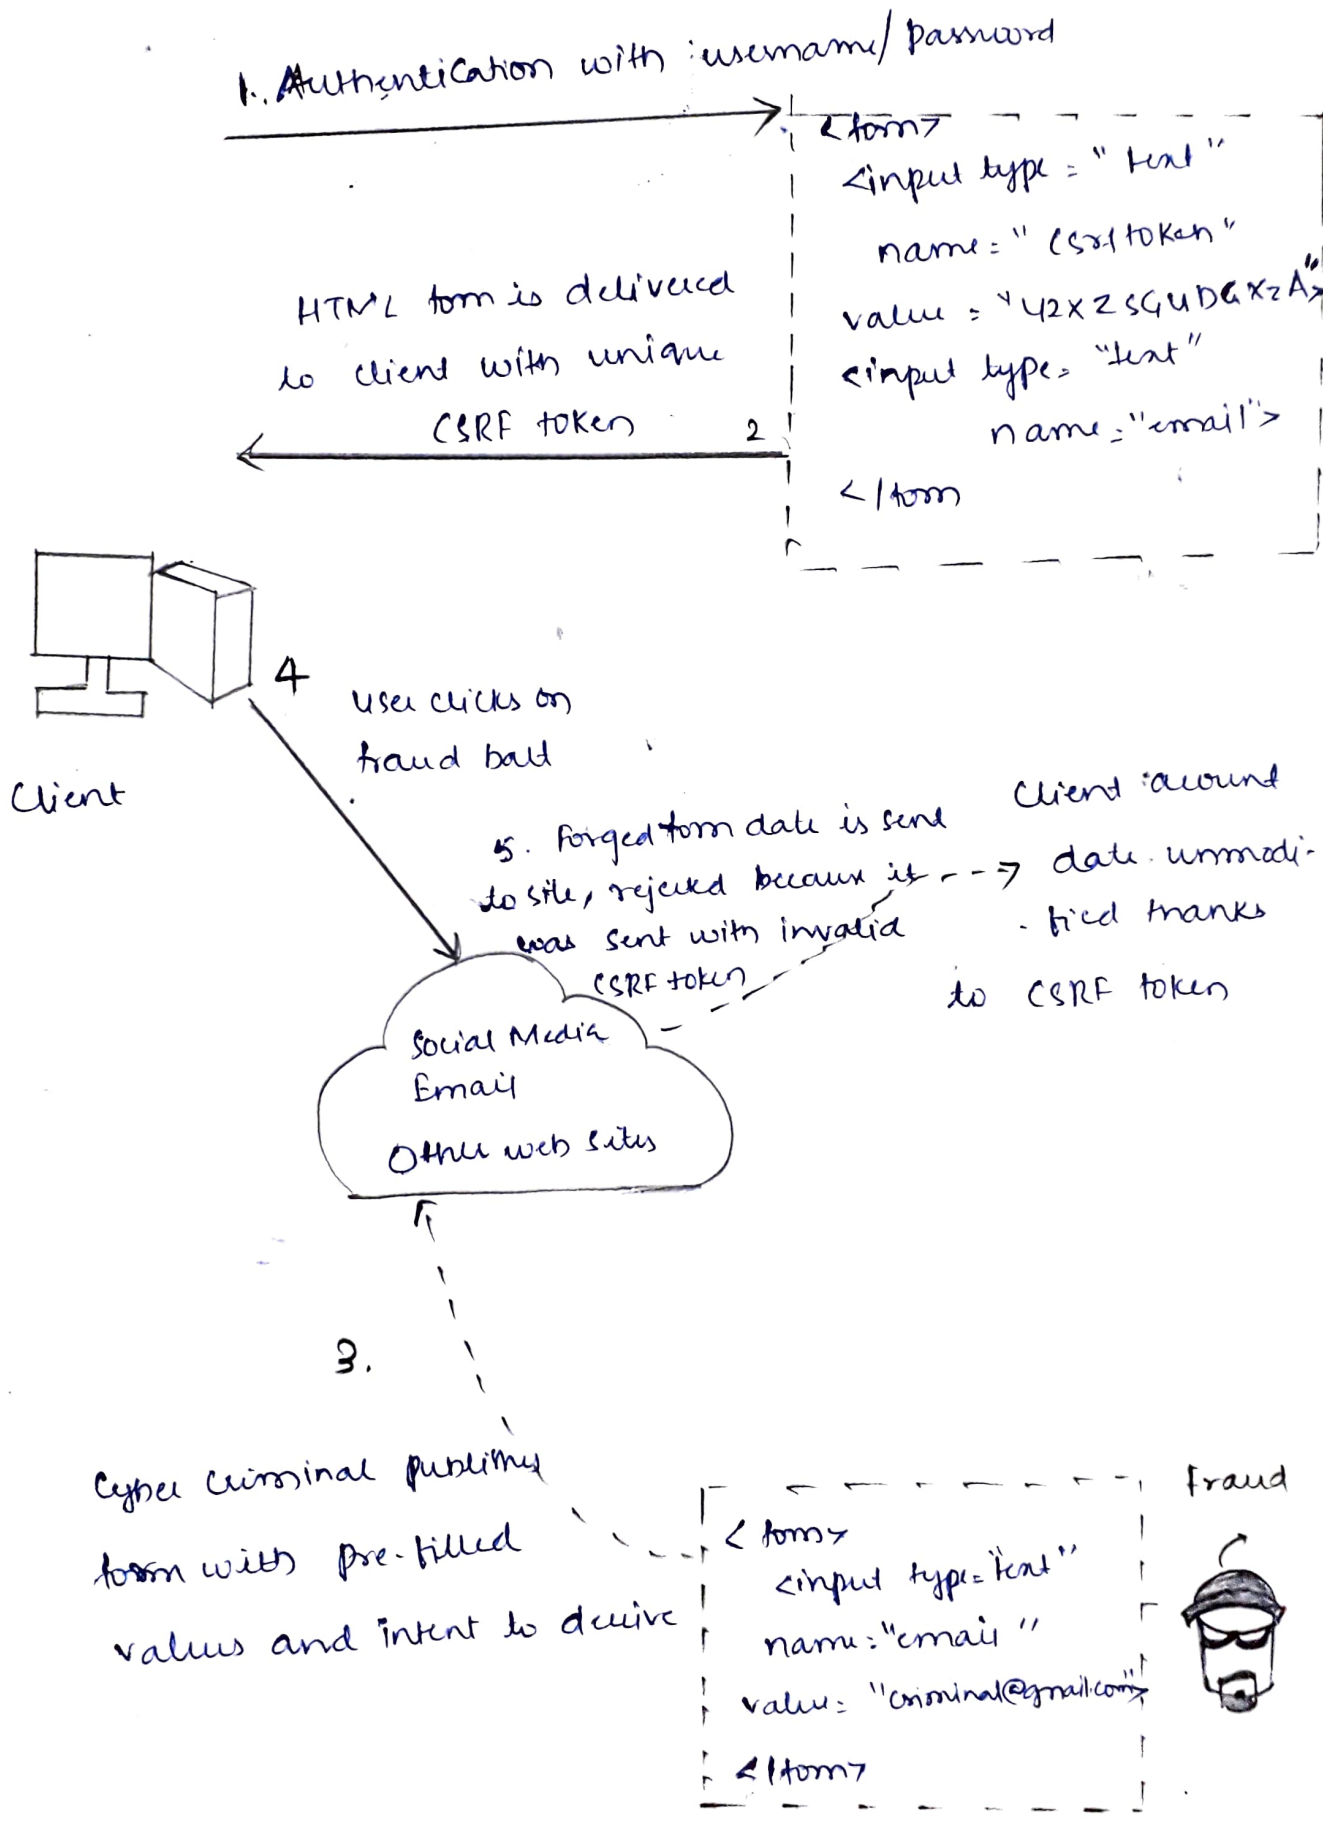 1. Authentication with username/password
<form>
<input type = "text"
name = "csrftoken"
value = "42XZSGUDGXzA">
<input type = "text"
name = "email">
</form
HTML form is delivered
to client with unique
CSRF token
2
4
User clicks on
fraud bait
Client
5. Forged form date is send
to site, rejected because it
was sent with invalid
CSRF token
Client account
date unmodi-
fied thanks
to CSRF token
Social Media
Email
Other web sites
3.
Cyber criminal publishes
form with pre-filled
values and intent to deceive
Fraud
<form>
<input type = "text"
name = "email"
value = "criminal@gmail.com">
</form>